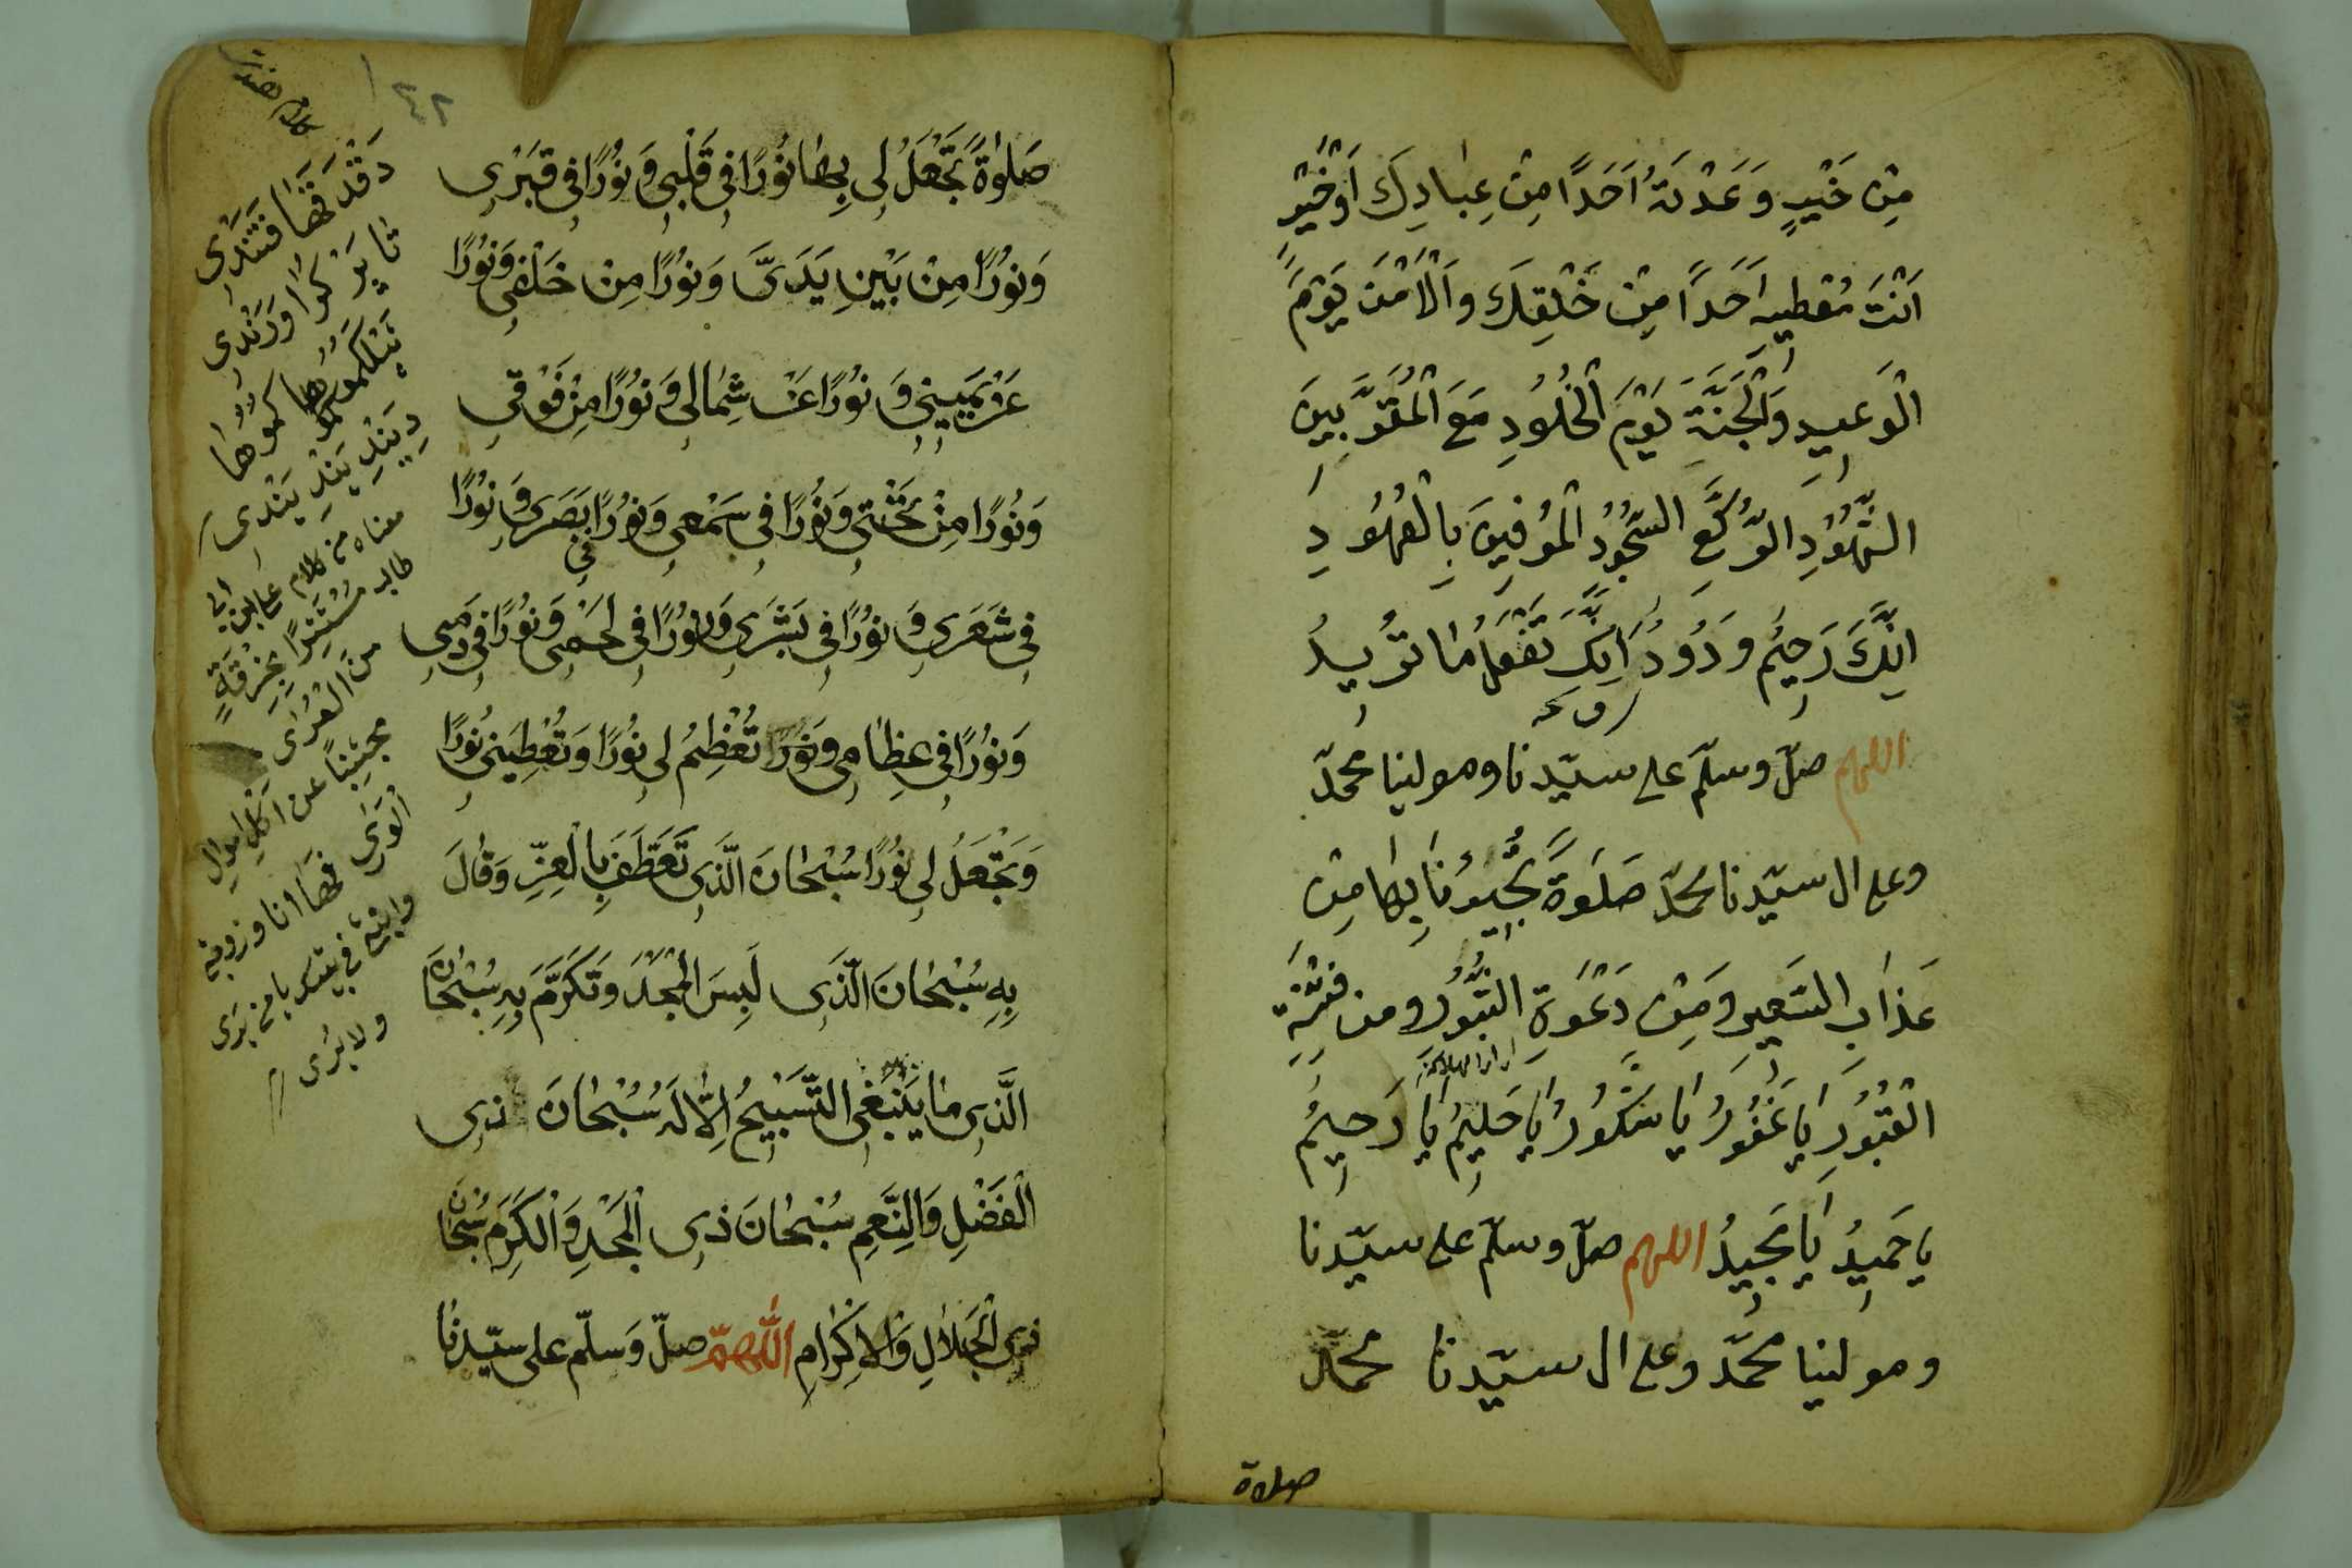 مِنْ خَيْرٍ وَعَدْتَهُ اَحَدًا مِنْ عِبَادِكَ اَوْ خَيْرٍ
اَنْتَ مُعْطِيهِ اَحَدًا مِنْ خَلْقِكَ وَالْاَمْنَ يَوْمَ
الْوَعِيدِ وَالْجَنَّةَ يَوْمَ الْخُلُودِ مَعَ الْمُقَرَّبِينَ
الشُّهُودِ الرُّكَّعِ السُّجُودِ الْمُوفِينَ بِالْعُهُودِ
اِنَّكَ رَحِيمٌ وَدُودٌ اِنَّكَ تَفْعَلُ مَا تُرِيدُ
اللهم صلّ وسلّم على سيّدنا ومولينا محمّد
وعلى ال سيّدنا محمّد صَلَوةً تُجِيرُنَا بِهَا مِنْ
عَذَابِ السَّعِيرِ وَمِنْ دَعْوَةِ الثُّبُورِ ومن فِتْنَةِ
الْقُبُورِ يَا غَفُورُ يَا شَكُورُ يَا حَلِيمُ يَا رَحِيمُ
يا حَمِيدُ يَا مَجِيدُ اللهم صلّ وسلّم على سيّدنا
ومولينا محمّد وعلى ال سيّدنا محمّد
صلاة
٤٢
صَلَوٰةً تَجْعَلُ لِي بِهَا نُورًا فِي قَلْبِي وَنُورًا فِي قَبْرِي
وَنُورًا مِنْ بَيْنِ يَدَىَّ وَنُورًا مِنْ خَلْفِي وَنُورًا
عَنْ يَمِينِي وَنُورًا عَنْ شِمَالِي وَنُورًا مِنْ فَوْقِي
وَنُورًا مِنْ تَحْتِي وَنُورًا فِي سَمْعِي وَنُورًا فِي بَصَرِي وَنُورًا
فِي شَعَرِي وَنُورًا فِي بَشَرِي وَنُورًا فِي لَحْمِي وَنُورًا فِي دَمِي
وَنُورًا فِي عِظَامِي وَنُورًا تُعْظِمُ لِي نُورًا وَتُعْطِيَنِي نُورًا
وَتَجْعَلُ لِي نُورًا سُبْحَانَ الَّذِي تَعَطَّفَ بِالْعِزِّ وَقَالَ
بِهِ سُبْحَانَ الَّذِي لَبِسَ الْمَجْدَ وَتَكَرَّمَ بِهِ سُبْحَانَ
الَّذِي مَا يَنْبَغِي التَّسْبِيحُ اِلَّا لَهُ سُبْحَانَ ذِي
الْفَضْلِ وَالنِّعَمِ سُبْحَانَ ذِي الْمَجْدِ وَالْكَرَمِ سُبْحَانَ
ذِي الْجَلَالِ وَالْاِكْرَامِ اَللّٰهُمَّ صلّ وَسلّم على سيّدنا
معناه من كلام على بن ابى
طالب مُسْتَتِرًا بِخِرْقَةٍ
من الْعُرَى
مجتنبًا عن اَكْلِ اموالِ
الْوَرَى فها انا وزوجتى
وابنتى فى بيتنا
ولا يُرَى